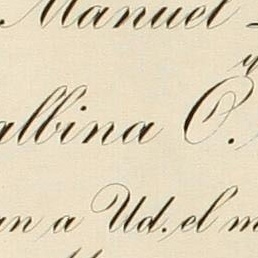 Manuel
y
albina O.
an a Ud. el m